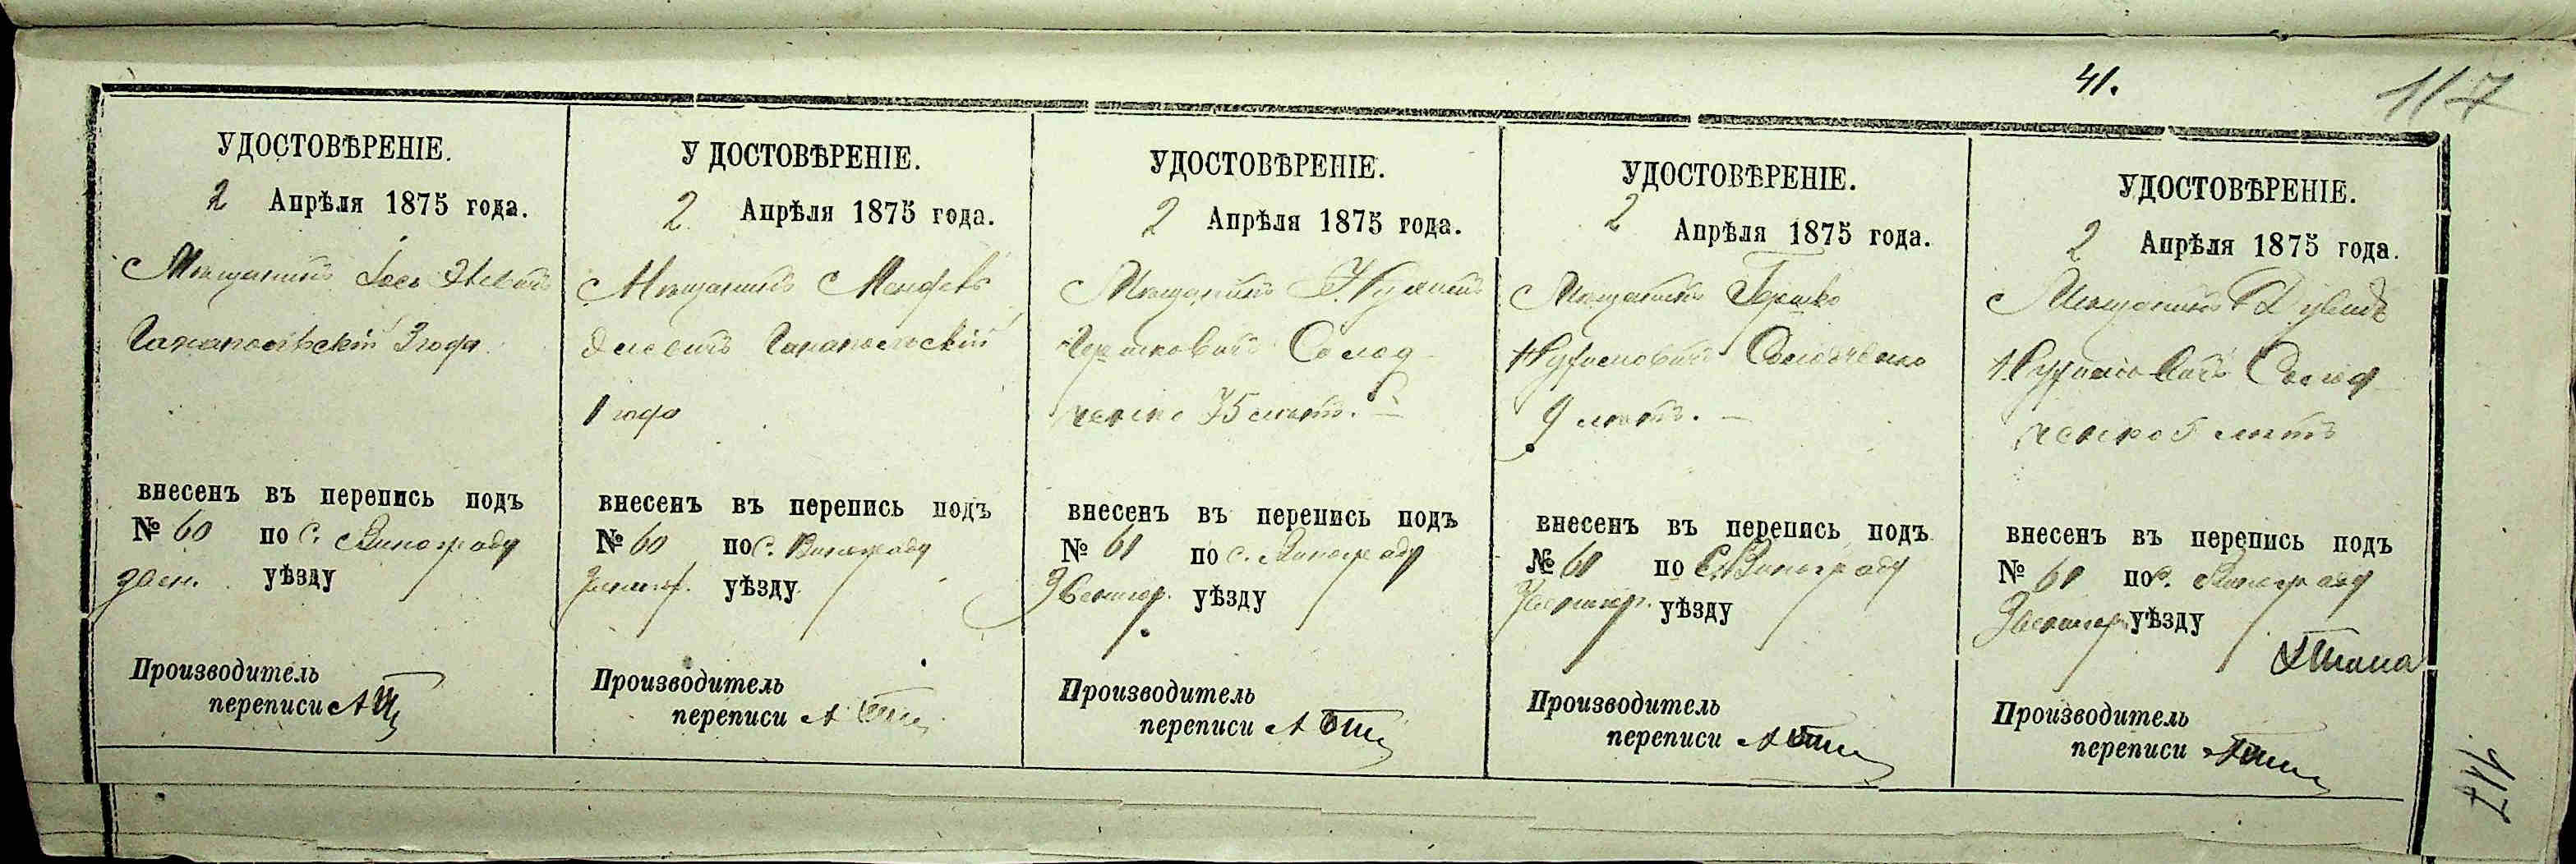 41.
117
УДОСТОВѢРЕНІЕ.
2 Апрѣля 1875 года.
Мѣщанинъ Іось
Ганапольскій 3 года
внесенъ въ перепись подъ
№ 60 по с. Винограду
Звен. уѣзду
Производитель
переписи
У ДОСТОВѢРЕНІЕ.
2 Апрѣля 1875 года.
Мѣщанинъ
Ганапольскій
1 года
внесенъ въ перепись подъ
№ 60 по с. Винограду
Звениг. уѣзду
Производитель
переписи
УДОСТОВѢРЕНІЕ.
2 Апрѣля 1875 года.
Мѣщанинъ
Гершковичъ Солод
ченко 75 лѣтъ. —
внесенъ въ перепись подъ
№ 61 по с. Винограду
Звенигор. уѣзду
Производитель
переписи
УДОСТОВѢРЕНІЕ.
2 Апрѣля 1875 года.
Мѣщанинъ Гершко
Солодченко
9 лѣтъ. —
внесенъ въ перепись подъ
№ 61 по С. Винограду
Звенигор. уѣзду
Производитель
переписи
УДОСТОВѢРЕНІЕ.
2 Апрѣля 1875 года.
Мѣщанинъ Дувидъ
Солод
ченко 5 лѣтъ
внесенъ въ перепись подъ
№ 61 по с. Винограду
Звенигор. уѣзду
Производитель
переписи
117